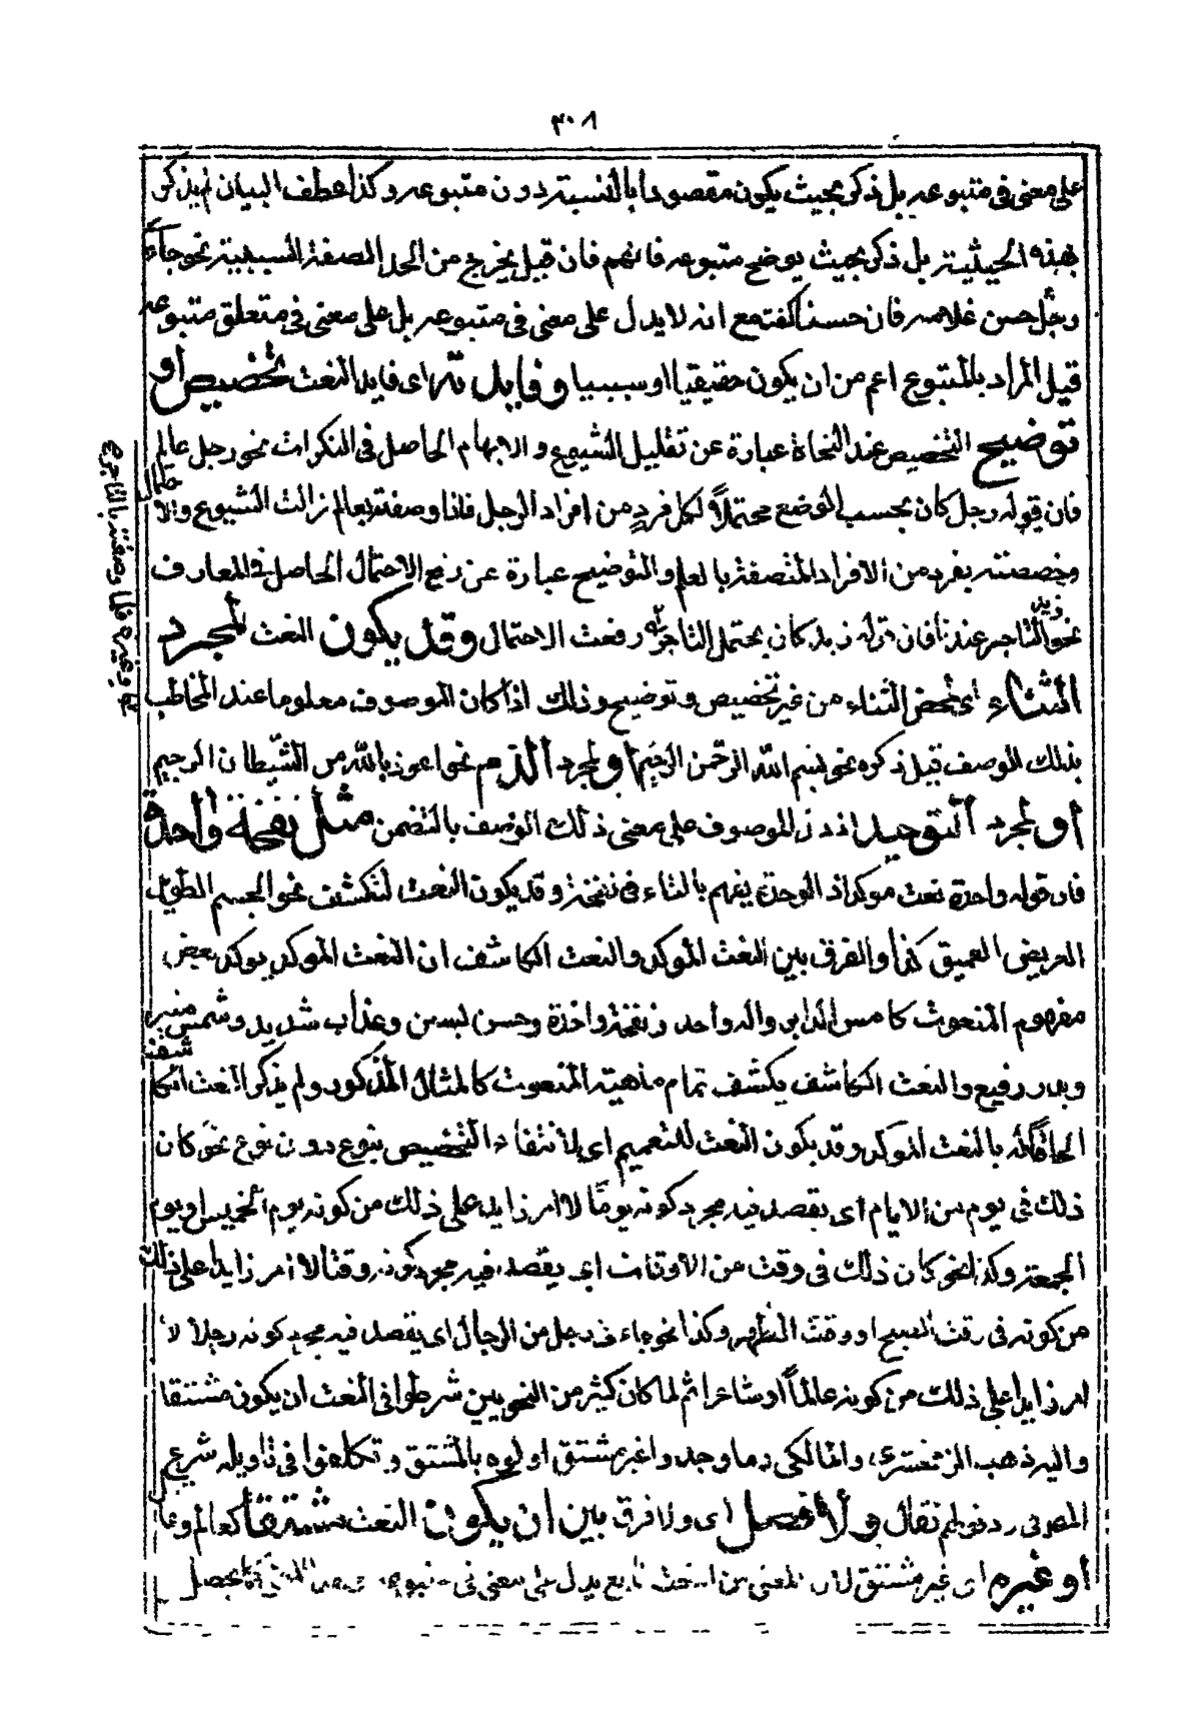 ٣٠٨
على معنى في متبوعه بل ذكر بحيث يكون مقصودا بالنسبة دون متبوعه وكذا عطف البيان لم يذكر
بهذه الحيثية بل ذكر بحيث يوضح متبوعه فافهم فان قيل يخرج من الحد الصفة السببية نحو جاء
رجل حسن غلامه فان حسنا كفته مع انه لا يدل على معنى في متبوعه بل على معنى في متعلق متبوعه
قيل المراد بالمتبوع اعم من ان يكون حقيقيا او سببيا وفايدته اى فايدة النعت تخصيص او
توضيح التخصيص عند النحاة عبارة عن تقليل الشيوع والابهام الحاصل في النكرات نحو رجل عالم
فان قوله رجل كان بحسب الوضع محتملاً لكل فردٍ من افراد الرجل فاذا وصفته بعالم زالت الشيوع والا
حتمال
وخصصته بفرد من الافراد المتصفة بالعلم والتوضيح عبارة عن رفع الاحتمال الحاصل في المعارف
نحو زيد التاجر عندنا فان قوله زيد كان يحتمل التاجر رفعت الاحتمال وقد يكون النعت لمجرد
وغيره فلما وصفته بالتاجر
الثناء اى لمحض الثناء من غير تخصيص وتوضيح وذلك اذا كان الموصوف معلوما عند المخاطب
بذلك الوصف قبل ذكره نحو بسم الله الرحمن الرحيم او لمجرد الذم نحو اعوذ بالله من الشيطان الرجيم
او لمجرد التوحيد اذ دل الموصوف على معنى ذلك الوصف بالتضمن مثل نفخة واحدة
فان قوله واحدة نعت موكد اذ الوحدة يفهم بالتاء في نفخة وقد يكون النعت لتكشف نحو الجسم الطويل
العريض العميق كذا والفرق بين النعت الموكد والنعت الكاشف ان النعت الموكد يوكد بعض
مفهوم المنعوت كامس الدابر واله واحد ونفخة واحدة وحسن لبسن وعذاب شديد وشمس منير
وبدر رفيع والنعت الكاشف يكشف تمام ماهية المنعوت كالمثال المذكور ولم يذكر النعت الكا
شفة
الحاقا له بالنعت الموكد وقد يكون النعت للتعميم اى لانتفاء التخصيص بنوع دون نوع نحو كان
ذلك في يوم من الايام اى يقصد فيه مجرد كونه يوما لا امر زايد على ذلك من كونه يوم الخميس او يوم
الجمعة وكذا نحو كان ذلك في وقت من الاوقات اى يقصد فيه مجرد كونه وقتا لا امر زايدا على ذلك
من كونه في وقت الصبح او وقت الظهر وكذا نحو جاءني رجل من الرجال اى يقصد فيه مجرد كونه رجلا لا
امر زايدا على ذلك من كونه عالماً او شاعرا ثم لما كان كثير من النحويين شرطوا في النعت ان يكون مشتقا
واليه ذهب الزمخشرى والمالكى وما وجدوا غير مشتق اولوه بالمشتق وتكلفوا في تاويله شرع
المص في رد قولهم فقال ولا فصل اى ولا فرق بين ان يكون النعت مشتقا كعالم وعا
او غيره اى غير مشتق لان المعنى من النعت تابع يدل على معنى في متبوعه يحصل